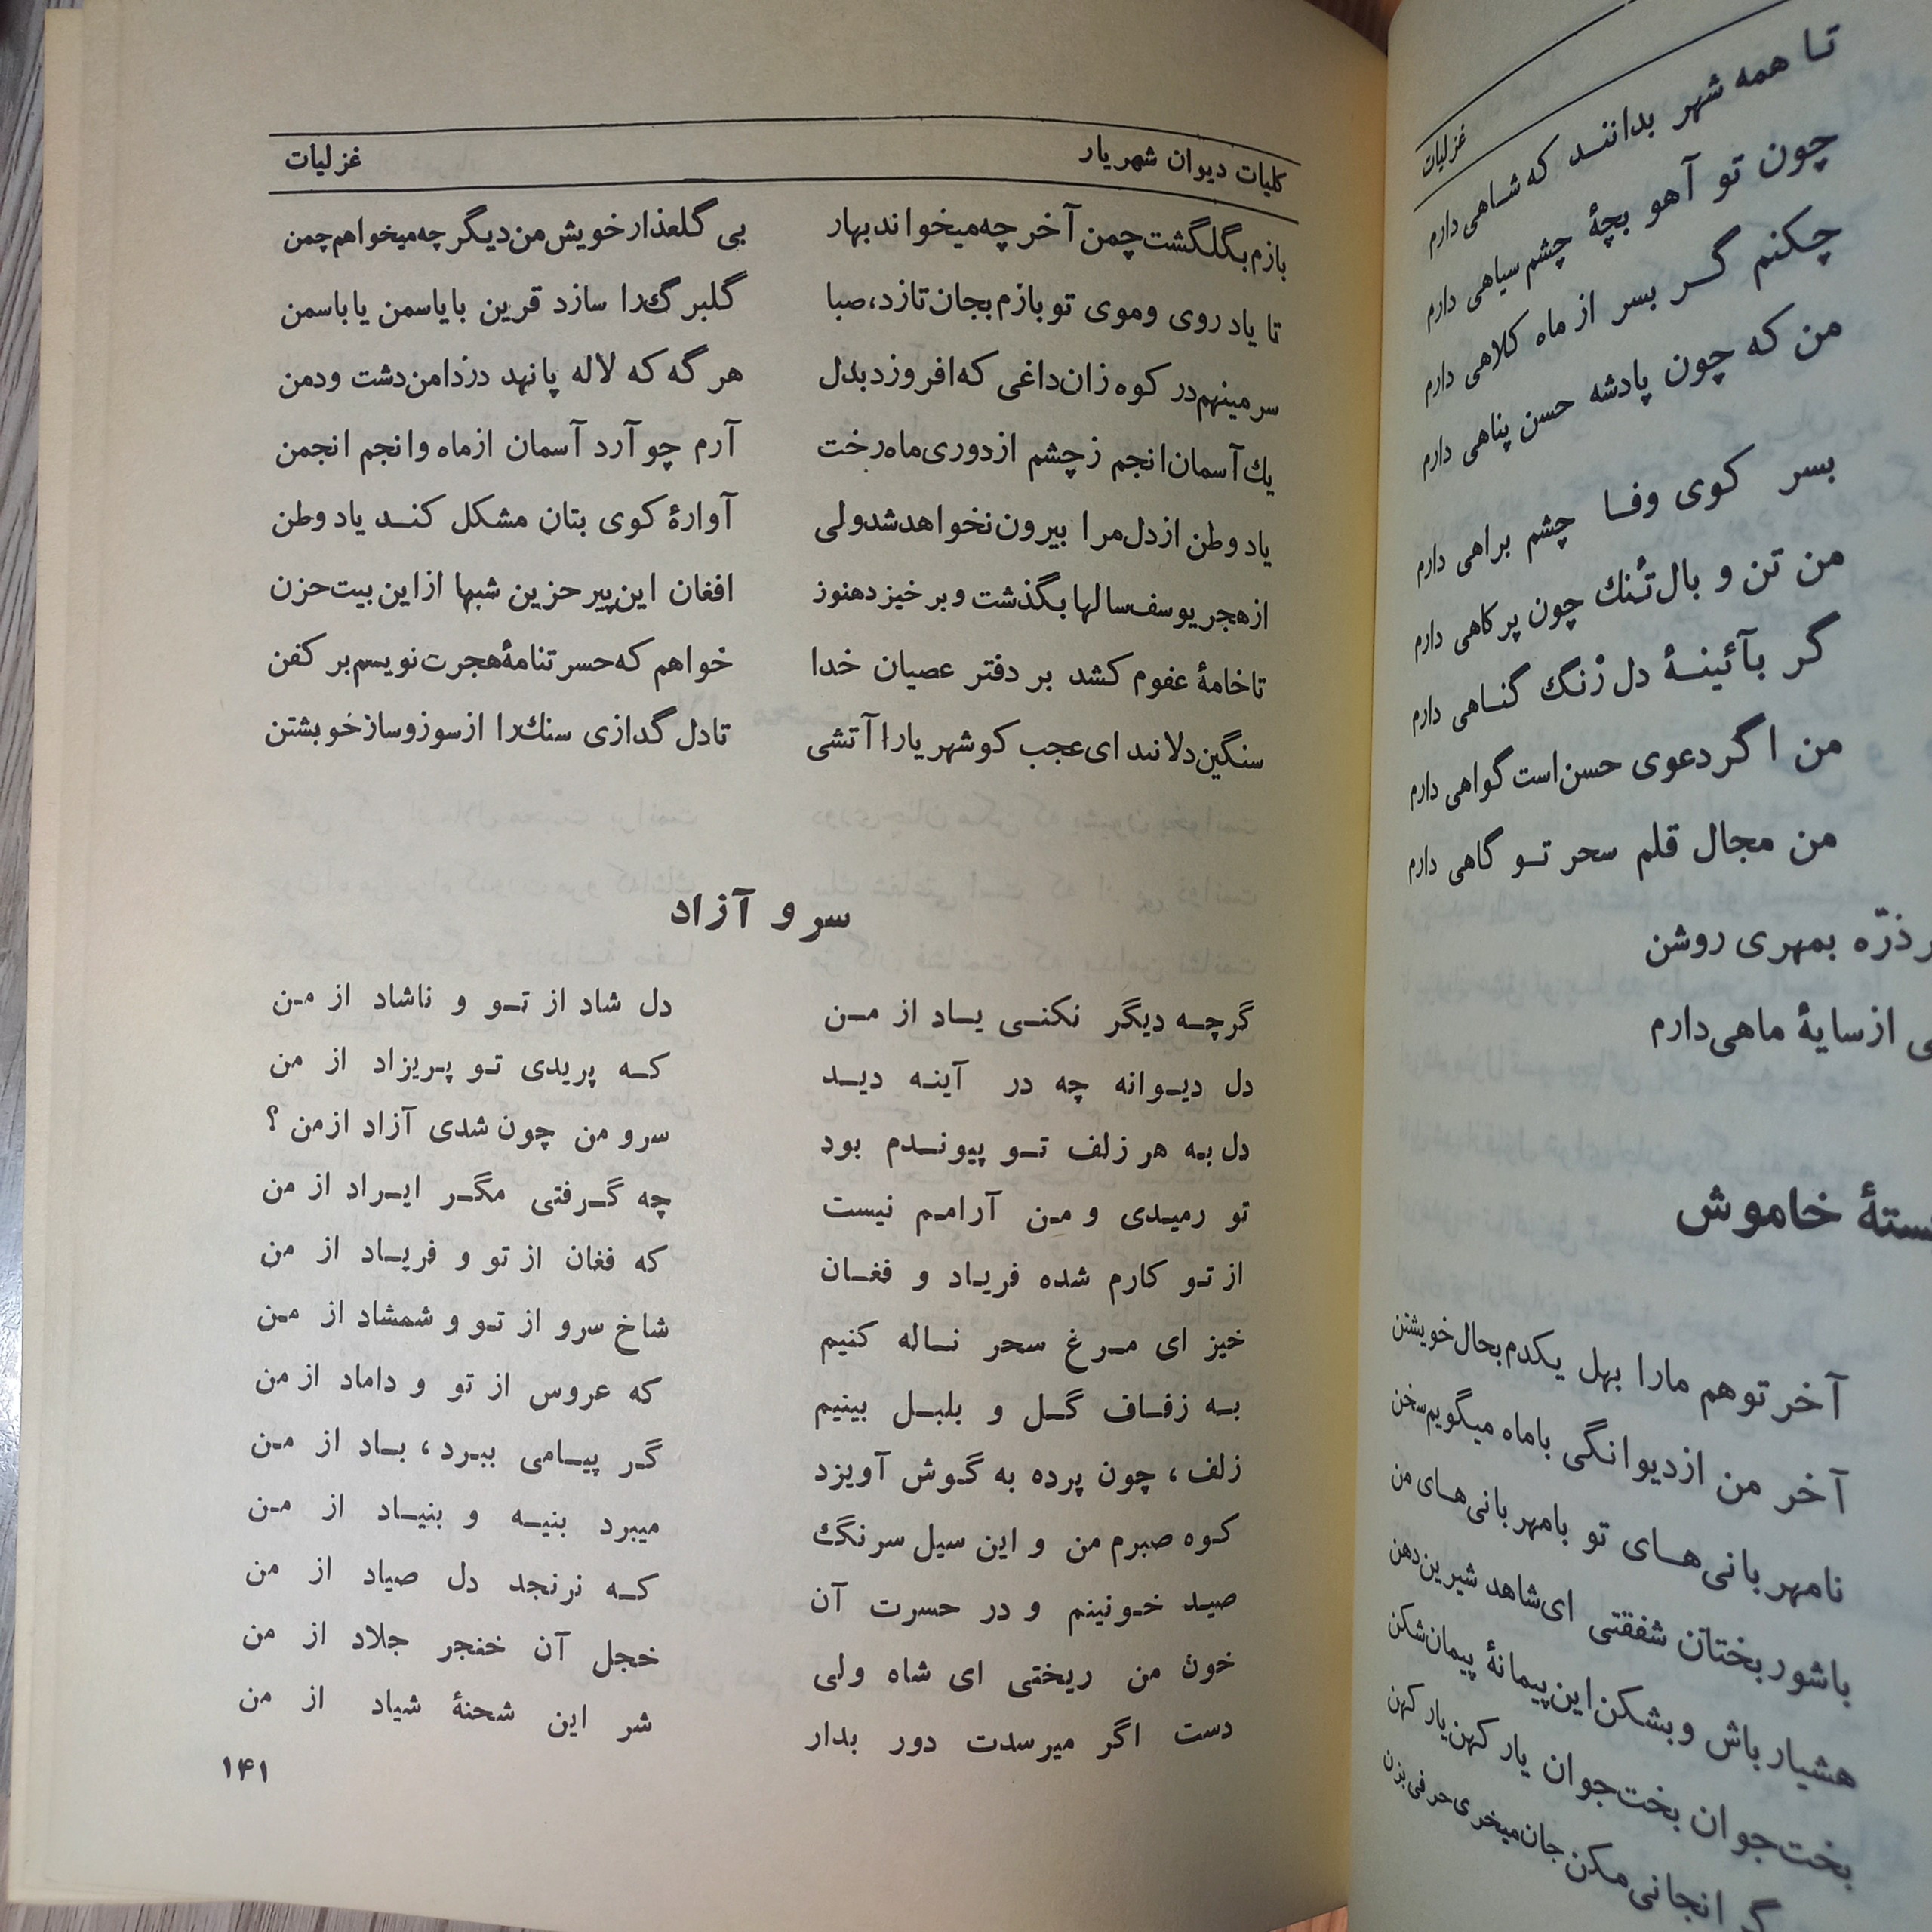 کلیات دیوان شهریار غزلیات
بازم بگلگشت چمن آخر چه میخواند بهار بی گلعذار خویش من دیگر چه میخواهم چمن
تا یاد روی و موی تو بازم بجان تازد، صبا گلبرگ را سازد قرین با یاسمن یا باسمن
سر مینهم در کوه زان داغی که افروزد بدل هر گه که لاله پا نهد در دامن دشت و دمن
یك آسمان انجم ز چشم از دوری ماه رخت آرم چو آرد آسمان از ماه و انجم انجمن
یاد وطن از دل مرا بیرون نخواهد شد ولی آوارۀ کوی بتان مشکل کند یاد وطن
از هجر یوسف سالها بگذشت و بر خیزد هنوز افغان این پیر حزین شبها از این بیت حزن
تا خامۀ عفوم کشد بر دفتر عصیان خدا خواهم که حسرتنامۀ هجرت نویسم بر کفن
سنگین دلانند ای عجب کو شهریارا آتشی تا دل گدازی سنك را از سوز و ساز خویشتن
سرو آزاد
گرچه دیگر نکنی یاد از من دل شاد از تو و ناشاد از من
دل دیوانه چه در آینه دید که پریدی تو پریزاد از من
دل به هر زلف تو پیوندم بود سرو من چون شدی آزاد از من ؟
تو رمیدی و من آرامم نیست چه گرفتی مگر ایراد از من
از تو کارم شده فریاد و فغان که فغان از تو و فریاد از من
خیز ای مرغ سحر ناله کنیم شاخ سرو از تو و شمشاد از من
به زفاف گل و بلبل بینیم که عروس از تو و داماد از من
زلف ، چون پرده به گوش آویزد گر پیامی ببرد ، باد از من
کوه صبرم من و این سیل سرنگ میبرد بنیه و بنیاد از من
صید خونینم و در حسرت آن که نرنجد دل صیاد از من
خون من ریختی ای شاه ولی خجل آن خنجر جلاد از من
دست اگر میرسدت دور بدار شر این شحنۀ شیاد از من
۱۴۱
غزلیات
تا همه شهر بدانند که شاهی دارم
چون تو آهو بچۀ چشم سیاهی دارم
چکنم گر بسر از ماه کلاهی دارم
من که چون پادشه حسن پناهی دارم
بسر کوی وفا چشم براهی دارم
من تن و بال تُنك چون پر کاهی دارم
گر بآئینۀ دل زنگ گناهی دارم
من اگر دعوی حسن است گواهی دارم
من مجال قلم سحر تو گاهی دارم
ذرّه بمهری روشن
از سایۀ ماهی دارم
خاموش
آخر تو هم مارا بهل یکدم بحال خویشتن
آخر من از دیوانگی با ماه میگویم سخن
نامهربانی‌های تو با مهربانی‌های من
با شوربختان شفقتی ای شاهد شیرین دهن
هشیار باش و بشکن این پیمانۀ پیمان شکن
بخت جوان بخت جوان یار کهن یار کهن
گرانجانی مکن جان میخری حرفی بزن